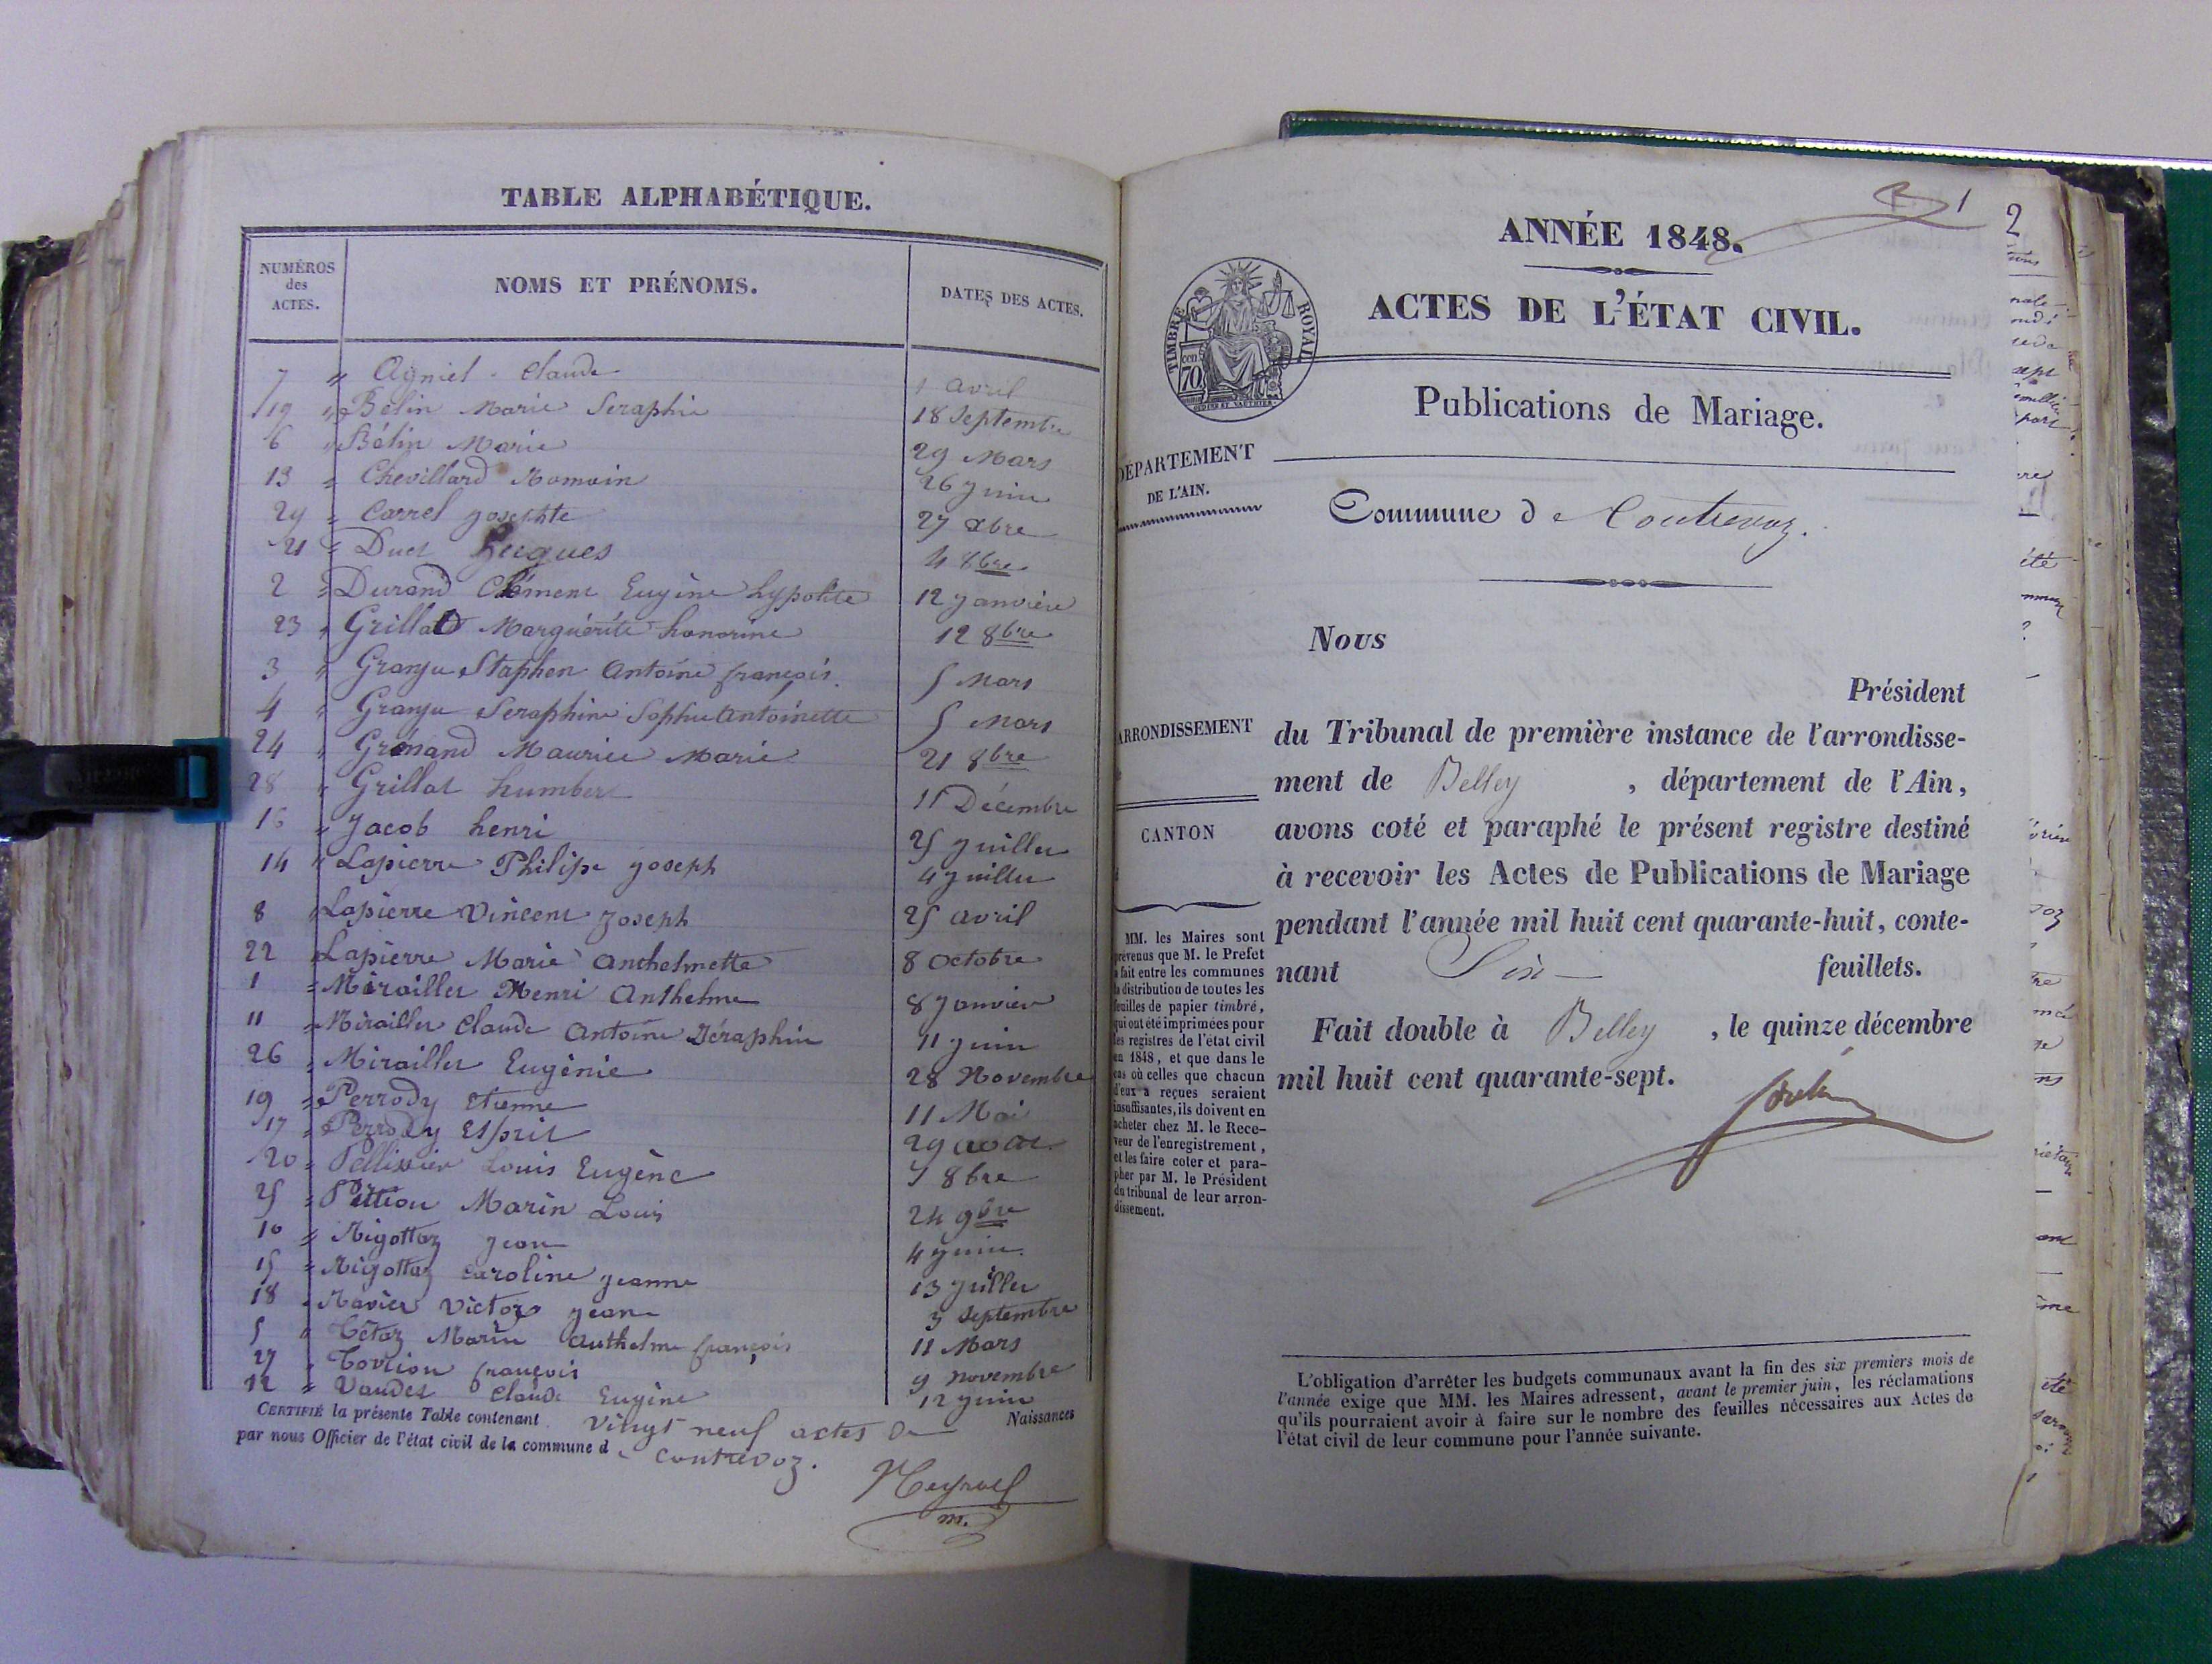 TABLE ALPHABÉTIQUE.
NUMÉROS des ACTES.
NOMS ET PRÉNOMS.
DATES DES ACTES.
7 " Agniel Claude 1 avril
19 " Belin Marie Seraphie 18 Septembre
6 " Bélin Marie 29 Mars
13 " Chevillard Romain 26 Juin
29 " Carrel Josephte 27 xbre
21 " Duct Jacques 4 8bre
2 " Durand Clément Eugène hypolite 12 Janvière
23 " Grillat Marguérite honorine 12 8bre
3 " Granju Staphen Antoine françois 5 Mars
4 " Granju Seraphine Sophie Antoinette 5 Mars
24 " Grenand Maurice Marie 21 8bre
28 " Grillat humbert 15 Décembre
16 " Jacob henri 25 Juillet
14 " Lapierre Philipe Joseph 4 Juillet
8 " Lapierre Vincent Joseph 25 avril
22 Lapierre Marie Anthelmette 8 octobre
1 " Miraillet Henri Anthelme 8 Janvier
11 " Miraillet Claude Antoine Séraphin 11 Juin
26 " Miraillet Eugènie 28 Novembre
19 " Perrody Etienne 11 Mai
17 " Perrody Esprit 29 aoat
20 " Pellissier Louis Eugène 7 8bre
25 " Marin Louis 24 9bre
10 " Rigottaz Jean 4 Juin
15 " Rigottaz Caroline Jeanne 13 Juillet
18 " Ravier Victor Jean 3 Septembre
5 " Tétaz Marin Anthelme françois 11 Mars
27 " françois 9 novembre
12 " Vaudet Claude Eugène 12 Juin
CERTIFIÉ la présente Table contenant vingt neuf actes de Naissances
par nous Officier de l'état civil de la commune de Contrevoz.
m.
1
ANNÉE 1848.
ACTES DE L'ÉTAT CIVIL.
TIMBRE ROYAL
cen
70
Publications de Mariage.
DÉPARTEMENT
DE L'AIN.
Commune de Contrevoz.
Nous
Président
ARRONDISSEMENT
du Tribunal de première instance de l'arrondisse-
ment de Belley, département de l'Ain,
CANTON
avons coté et paraphé le présent registre destiné
à recevoir les Actes de Publications de Mariage
pendant l'année mil huit cent quarante-huit, conte-
nant Six feuillets.
Fait double à Belley, le quinze décembre
mil huit cent quarante-sept.
MM. les Maires sont
prévenus que M. le Prefet
a fait entre les communes
la distribution de toutes les
feuilles de papier timbré,
qui ont été imprimées pour
les registres de l'état civil
en 1848, et que dans le
cas où celles que chacun
d'eux a reçues seraient
insuffisantes, ils doivent en
acheter chez M. le Rece-
veur de l'enregistrement,
et les faire coter et para-
pher par M. le Président
du tribunal de leur arron-
dissement.
L'obligation d'arrêter les budgets communaux avant la fin des six premiers mois de
l'année exige que MM. les Maires adressent, avant le premier juin, les réclamations
qu'ils pourraient avoir à faire sur le nombre des feuilles nécessaires aux Actes de
l'état civil de leur commune pour l'année suivante.
2